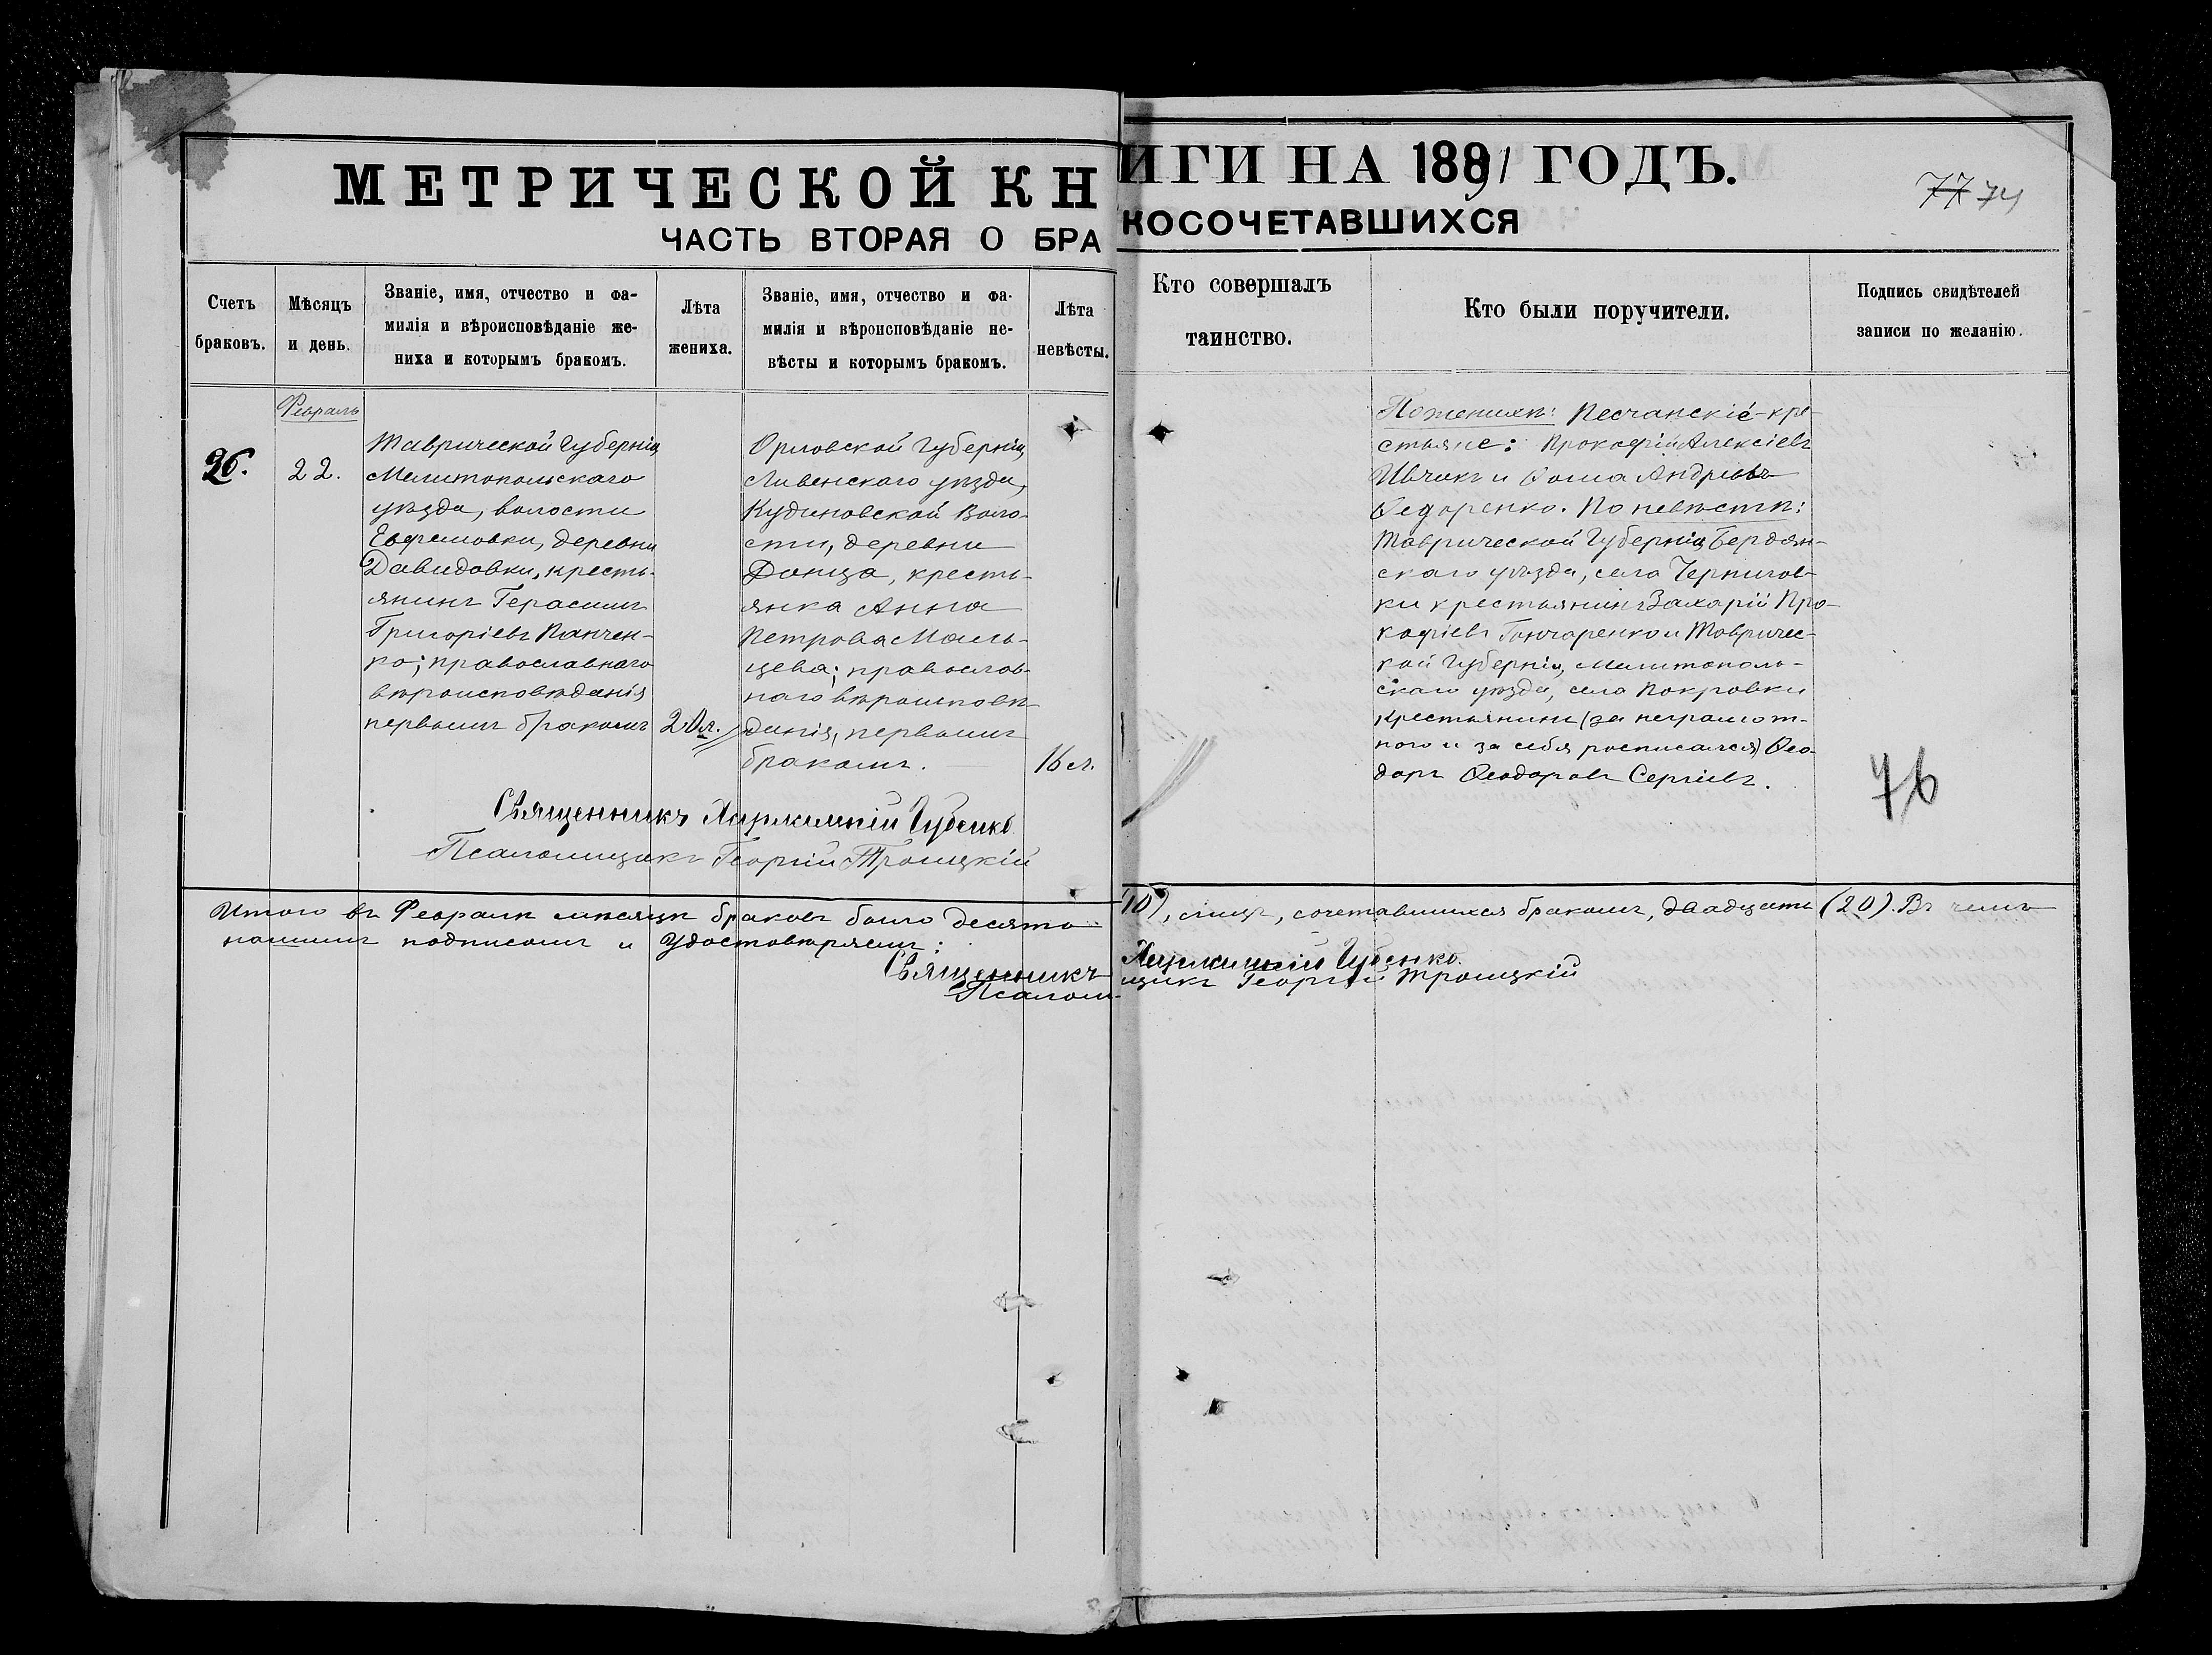 МЕТРИЧЕСКОЙ КНИГИ НА 1891 ГОДЪ.
77 74
ЧАСТЬ ВТОРАЯ О БРАКОСОЧЕТАВШИХСЯ
Счетъ браковъ.
Мѣсяцъ и день.
Званіе, имя, отчество и фа-
милія и вѣроисповѣданіе же-
ниха и которымъ бракомъ.
Лѣта жениха.
Званіе, имя, отчество и фа-
милія и вѣроисповѣданіе не-
вѣсты и которымъ бракомъ.
Лѣта невѣсты.
Кто совершалъ таинство.
Кто были поручители.
Подпись свидѣтелей
записи по желанію.
Февраль
26.
22.
Таврической Губерніи
Мелитопольскаго
уѣзда, волости
Ефремовки, деревни
Давидовки, кресть-
янинъ Герасимъ
Григоріевъ Панчен-
ко; православнаго
вѣроисповѣданія
первымъ бракомъ
20 л.
Орловской Губерніи,
Ливенскаго уѣзда,
Кудиновской Воло-
сти, деревни
Донца, кресть-
янка Анна
Петрова Маль-
цева; православ-
наго вѣроисповѣ-
данія, первымъ
бракомъ.
16 л.
По женихѣ: Песчанскіе кре-
стьяне: Прокофій Алексіевъ
Ивчикъ и Ѳома Андреевъ
Ѳедоренко. По невѣстѣ:
Таврической Губерніи Бердян-
скаго уѣзда, села Чернигов-
ки крестьянинъ Захарій Про-
кофіевъ Гончаренко и Тавричес-
кой Губерніи, Мелитополь-
скаго уѣзда, села Покровки
крестьянинъ (за неграмот-
наго и за себя росписался) Ѳео-
доръ Ѳеодоровъ Сергіевъ.
76
Священникъ Губенко
Псаломщикъ Георгій Троицкій
Итого въ Февралѣ мѣсяцѣ браковъ было десять (10), лицъ, сочетавшихся бракомъ, двадцать (20). Въ чемъ
нашимъ подписомъ и удостовѣряемъ:
Священникъ Губенко.
Псаломщикъ Георгій Троицкій